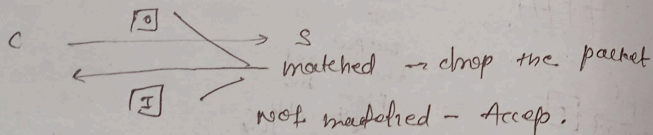 O
C S
matched - drop the packet
I
not matched - Accep.